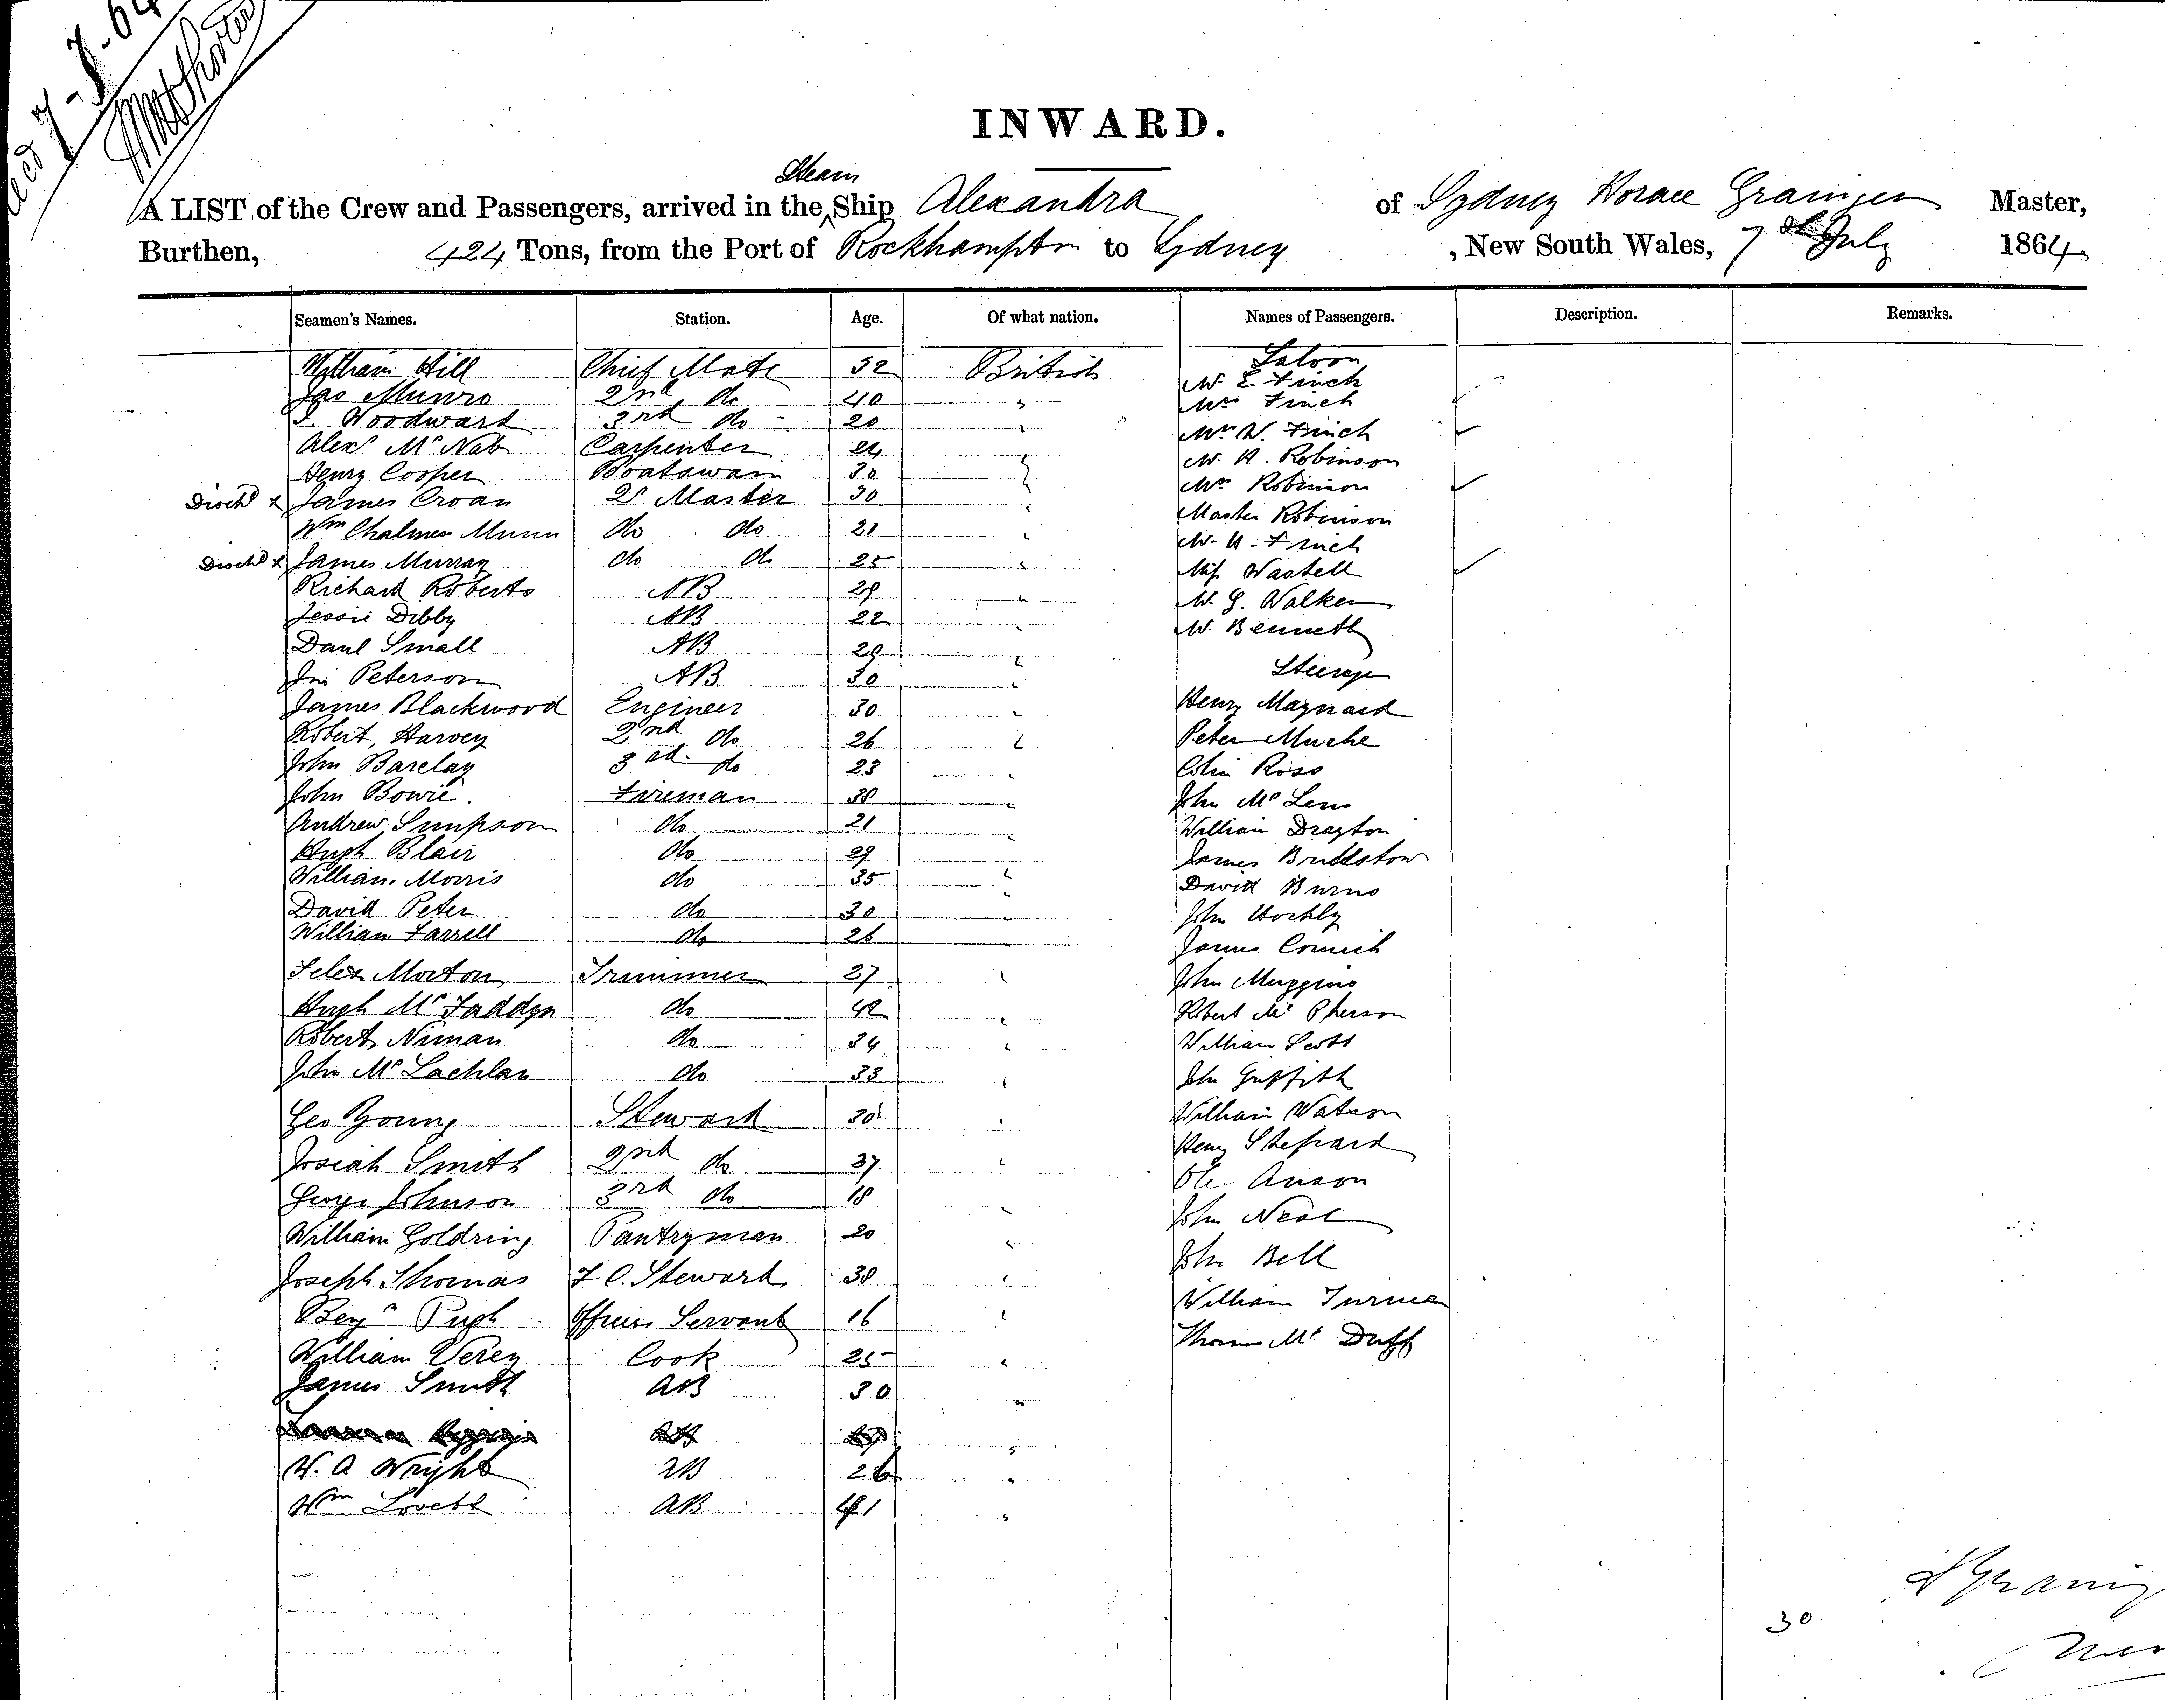 INWARD.
Steam
A LIST of the Crew and Passengers, arrived in the Ship Alexandra of Sydney Horace Grainger Master,
Burthen, 424 Tons, from the Port of Rockhampton to Sydney , New South Wales, 7th July 1864
Seamen's Names. Station. Age. Of what nation. Names of Passengers. Description. Remarks.
William Hill Chief Mate 32 British Saloon
Jas Munro 2nd do 40 " Mr E. Finch
Woodward 3rd do 20 " Mrs Finch
Alexr McNab Carpenter 24 " Mr W. Finch
Henry Cooper Boatswain 30 " Mr H. Robinson
Dischd x James Croan Qr Master 30 " Mrs Robinson
Wm Chalmers Munn do do 21 " Master Robinson
Dischd x James Murray do do 25 " Mr H. Finch
Richard Roberts AB 29 " Miss Wastell
Jessie Dibby AB 22 " Mr G. Walker
Danl Small AB 29 " Mr Bennett
Jno Peterson AB 30 " Steerage
James Blackwood Engineer 30 " Henry Maynard
Robert Harvey 2nd do 26 " Peter
John Barclay 3rd do 23 " Colin Ross
John Bowie. Fireman 38 " John
Andrew Simpson do 21 " William Drayton
Hugh Blair do 29 " James
William Morris do 35 " David Burns
David Peter do 30 " John
William Farrell do 26 James Cornish
Morton Trimmer 27 " John Muggins
Hugh McFaddyn do 42 " Robert McPherson
Robert Niman do 34 " William Scott
John McLachlan do 33 " John Griffith
Geo Young Steward 30 " William Watson
Josiah Smith 2nd do 37 " Henry Shepard
George Johnson 3rd do 18 " Ole Anson
William Goldring Pantryman 20 " John Neal
Joseph Thomas F C. Steward 38 " John Bell
Benjn Pugh Officers Servant 16 " William Turner
William Verey Cook 25 " Thomas McDuff
James Smith AB 30 "
W. A Wright AB 26 "
Wm Lovett AB 41 "
30